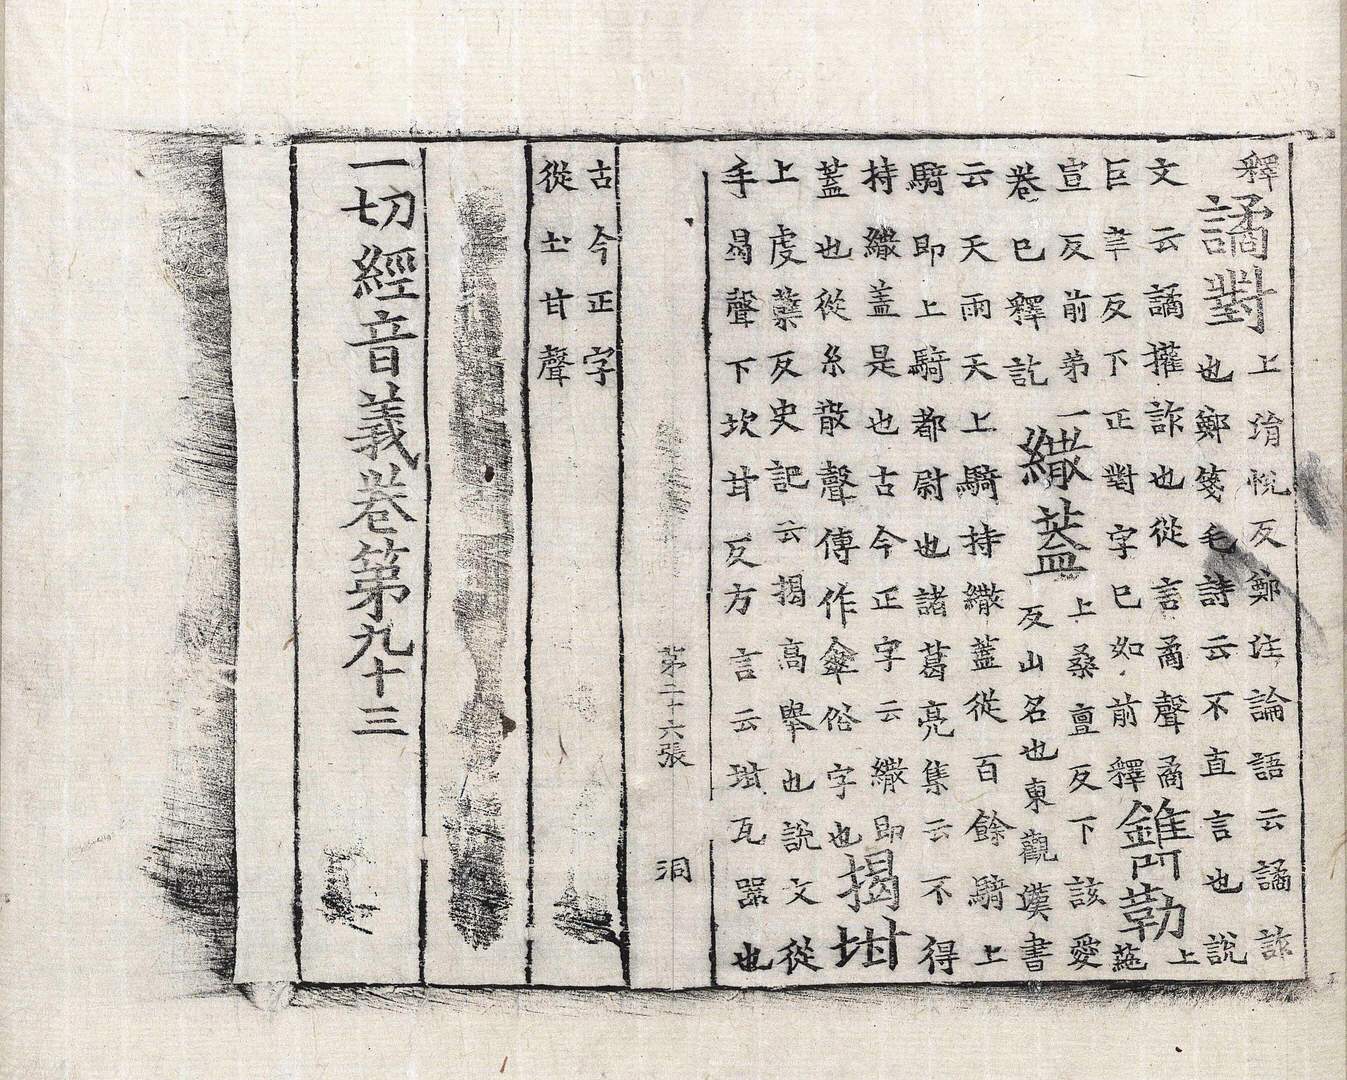 釋譎對上涓悅反鄭注論語云譎詐
也鄭箋毛詩云不直言也說
文云譎摧詐也從言矞聲矞
巨聿反下正對字已如前釋
勒上
宣反前第一
卷已釋訖
繖蓋上桑亶反下該愛
反山名也東觀漢書
云天雨天上騎持繖蓋從百餘騎上
騎即上騎都尉也諸葛亮集云不得
持繖蓋是也古今正字云繖即
蓋也從糸散聲傳作傘俗字也
揭坩
上虔蘖反史記云揭高舉也說文從
手曷聲下坎甘反方言云坩瓦器也
第二十六張 洞
古今正字
從土甘聲
一切經音義卷第九十三